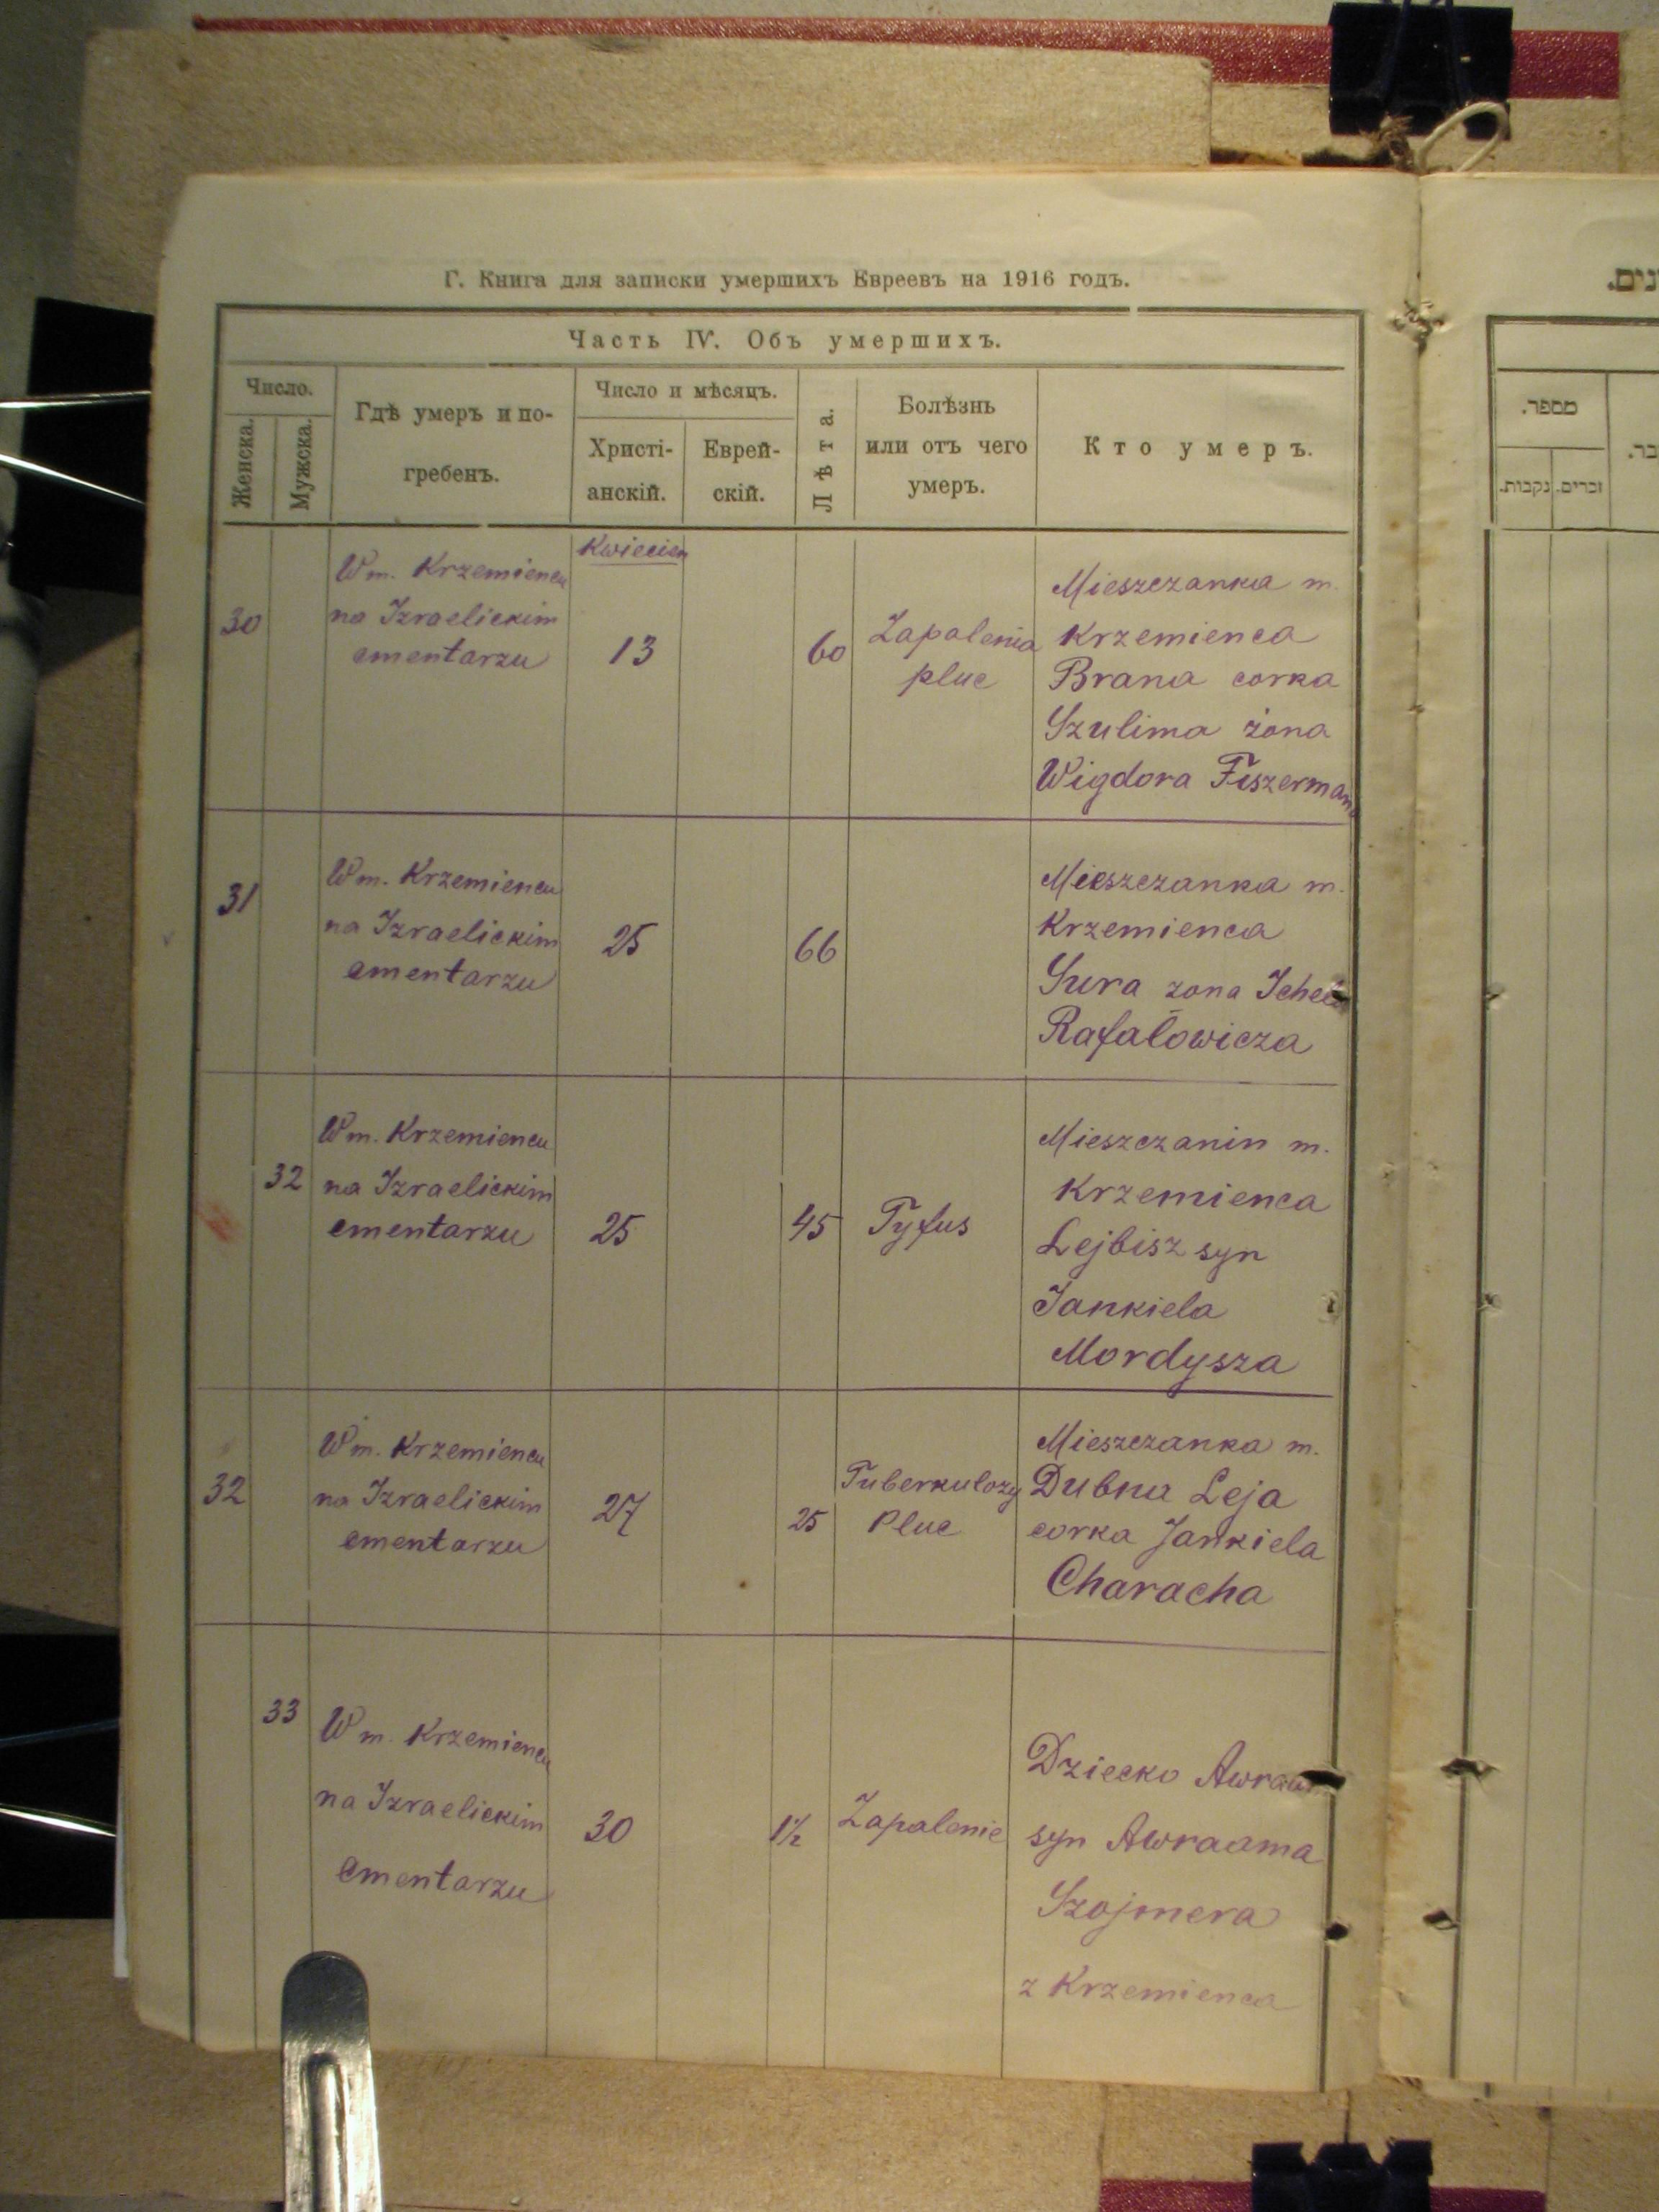 Г. Книга для записки умершихъ Евреевъ на 1916 годъ.
Часть IV. Объ умершихъ.
Число.
Женска.
Мужска.
Гдѣ умеръ и по-
гребенъ.
Число и мѣсяцъ.
Христі-
анскій.
Еврей-
скій.
Лѣта.
Болѣзнь
или отъ чего
умеръ.
Кто умеръ.
Kwiecień
30
W m. Krzemiencu
na Izraelickim
cmentarzu
13
60
Zapalenia
pluc
Mieszczanka m.
Krzemienca
Brana corka
Szulima żona
Wigdora Fiszermana
31
W m. Krzemiencu
na Izraelickim
cmentarzu
25
66
Mieszczanka m.
Krzemienca
Sura zona
Rafałowicza
32
W m. Krzemiencu
na Izraelickim
cmentarzu
25
45
Tyfus
Mieszczanin m.
Krzemienca
Lejbisz syn
Jankiela
Mordysza
32
W m. Krzemiencu
na Izraelickim
cmentarzu
27
25
Tuberkulozy
Pluc
Mieszczanka m.
Dubna Leja
corka Jankiela
Characha
33
W m. Krzemiencu
na Izraelickim
cmentarzu
30
1½
Zapalenie
Dziecko
syn Awraama
Szojmera
z Krzemienca
מספר.
נקבות.
זכרים.